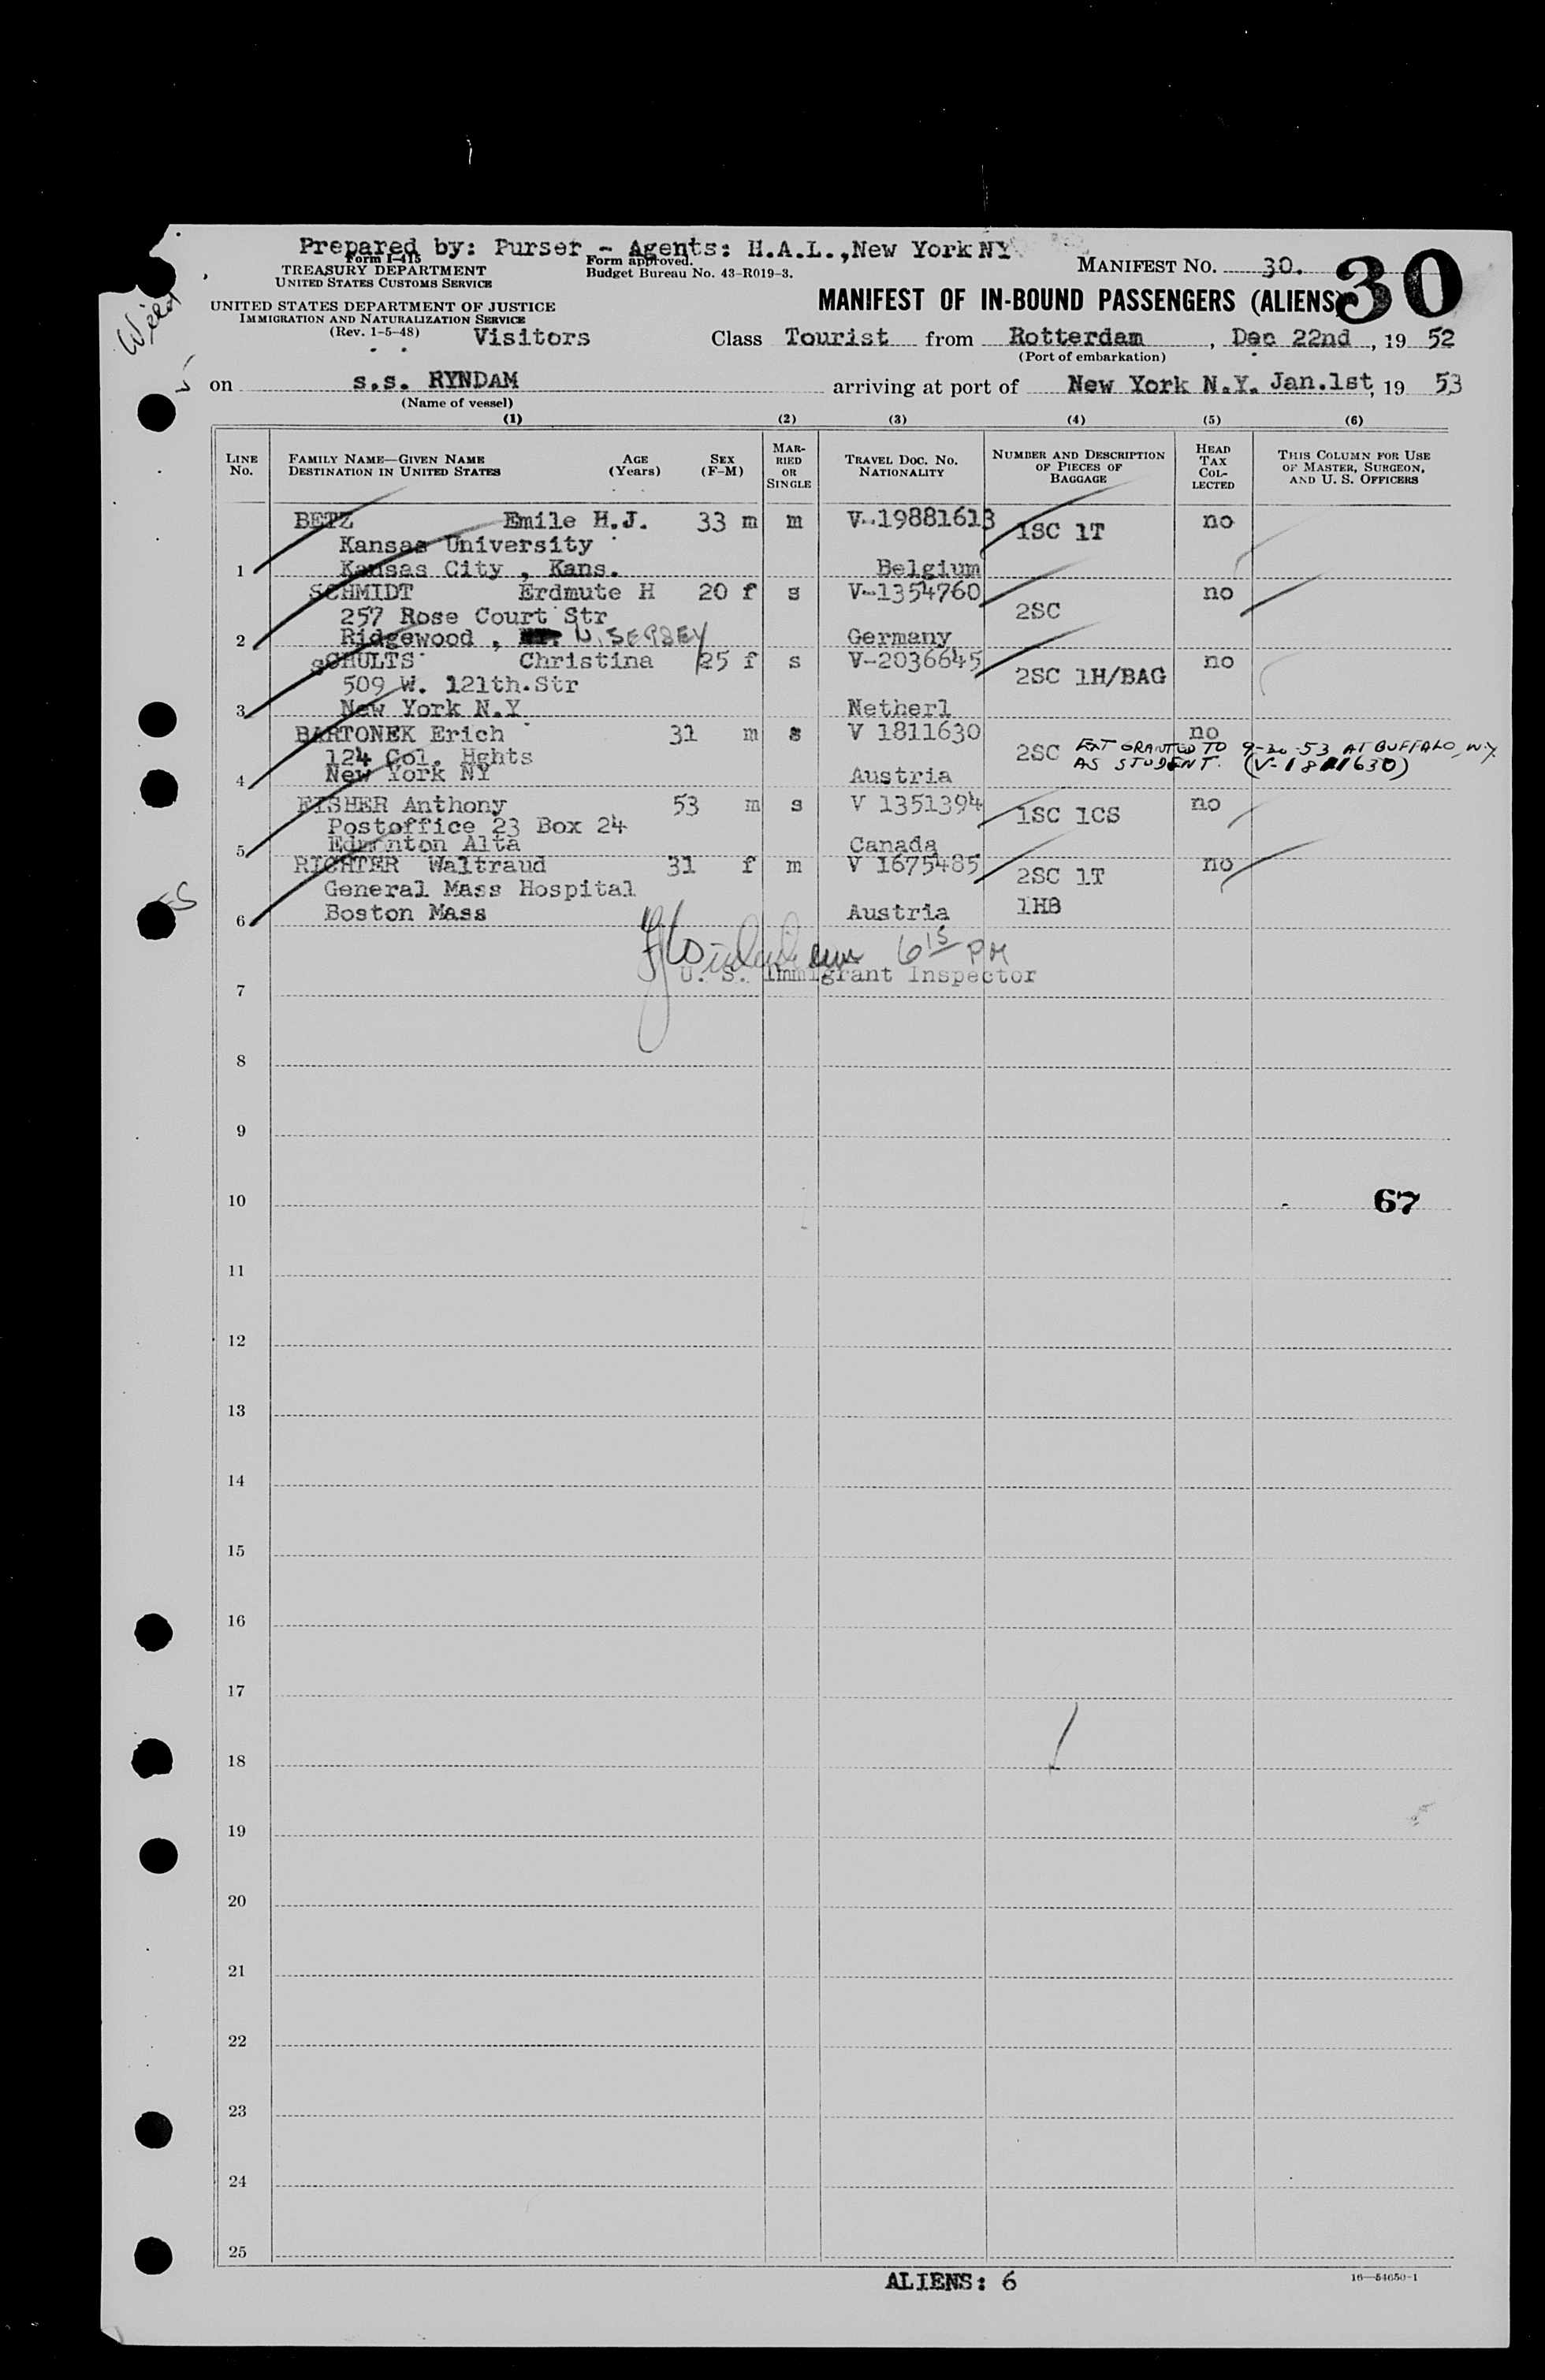 Prepared by: Purser - Agents: H.A.L., New York NY
Form I-415
TREASURY DEPARTMENT
UNITED STATES CUSTOMS SERVICE
Form approved.
Budget Bureau No. 43-R019-3.
MANIFEST NO. 30.
30
UNITED STATES DEPARTMENT OF JUSTICE
IMMIGRATION AND NATURALIZATION SERVICE
(Rev. 1-5-48)
MANIFEST OF IN-BOUND PASSENGERS (ALIENS)
Visitors Class Tourist from Rotterdam, Dec 22nd, 19 52
(Port of embarkation)
on s.s. RYNDAM arriving at port of New York N.Y. Jan.1st, 19 53
(Name of vessel)
(1) (2) (3) (4) (5) (6)
LINE NO.
FAMILY NAME—GIVEN NAME
DESTINATION IN UNITED STATES
AGE (Years)
SEX (F-M)
MARRIED OR SINGLE
TRAVEL DOC. NO.
NATIONALITY
NUMBER AND DESCRIPTION OF PIECES OF BAGGAGE
HEAD TAX COLLECTED
THIS COLUMN FOR USE OF MASTER, SURGEON, AND U. S. OFFICERS
BETZ Emile H.J. 33 m m V-19881613 1SC 1T no
Kansas University
1 Kansas City , Kans. Belgium
SCHMIDT Erdmute H 20 f s V-1354760 2SC no
257 Rose Court Str
2 Ridgewood , N. JERSEY Germany
sCHULTS Christina 25 f s V-2036645 2SC 1H/BAG no
509 W. 121th.Str
3 New York N.Y Netherl
BARTONEK Erich 31 m s V 1811630 2SC no
124 Col. Hghts
4 New York NY Austria
EXT GRANTED TO 9-30-53 AT BUFFALO, N.Y.
AS STUDENT. (V-1811630)
FISHER Anthony 53 m s V 1351394 1SC 1CS no
Postoffice 23 Box 24
5 Edmonton Alta Canada
RICHTER Waltraud 31 f m V 1675485 2SC 1T no
General Mass Hospital
6 Boston Mass Austria 1HB
6 15 PM
U. S. Immigrant Inspector
7
8
9
10
67
11
12
13
14
15
16
17
18
19
20
21
22
23
24
25
ALIENS: 6
16—54650-1